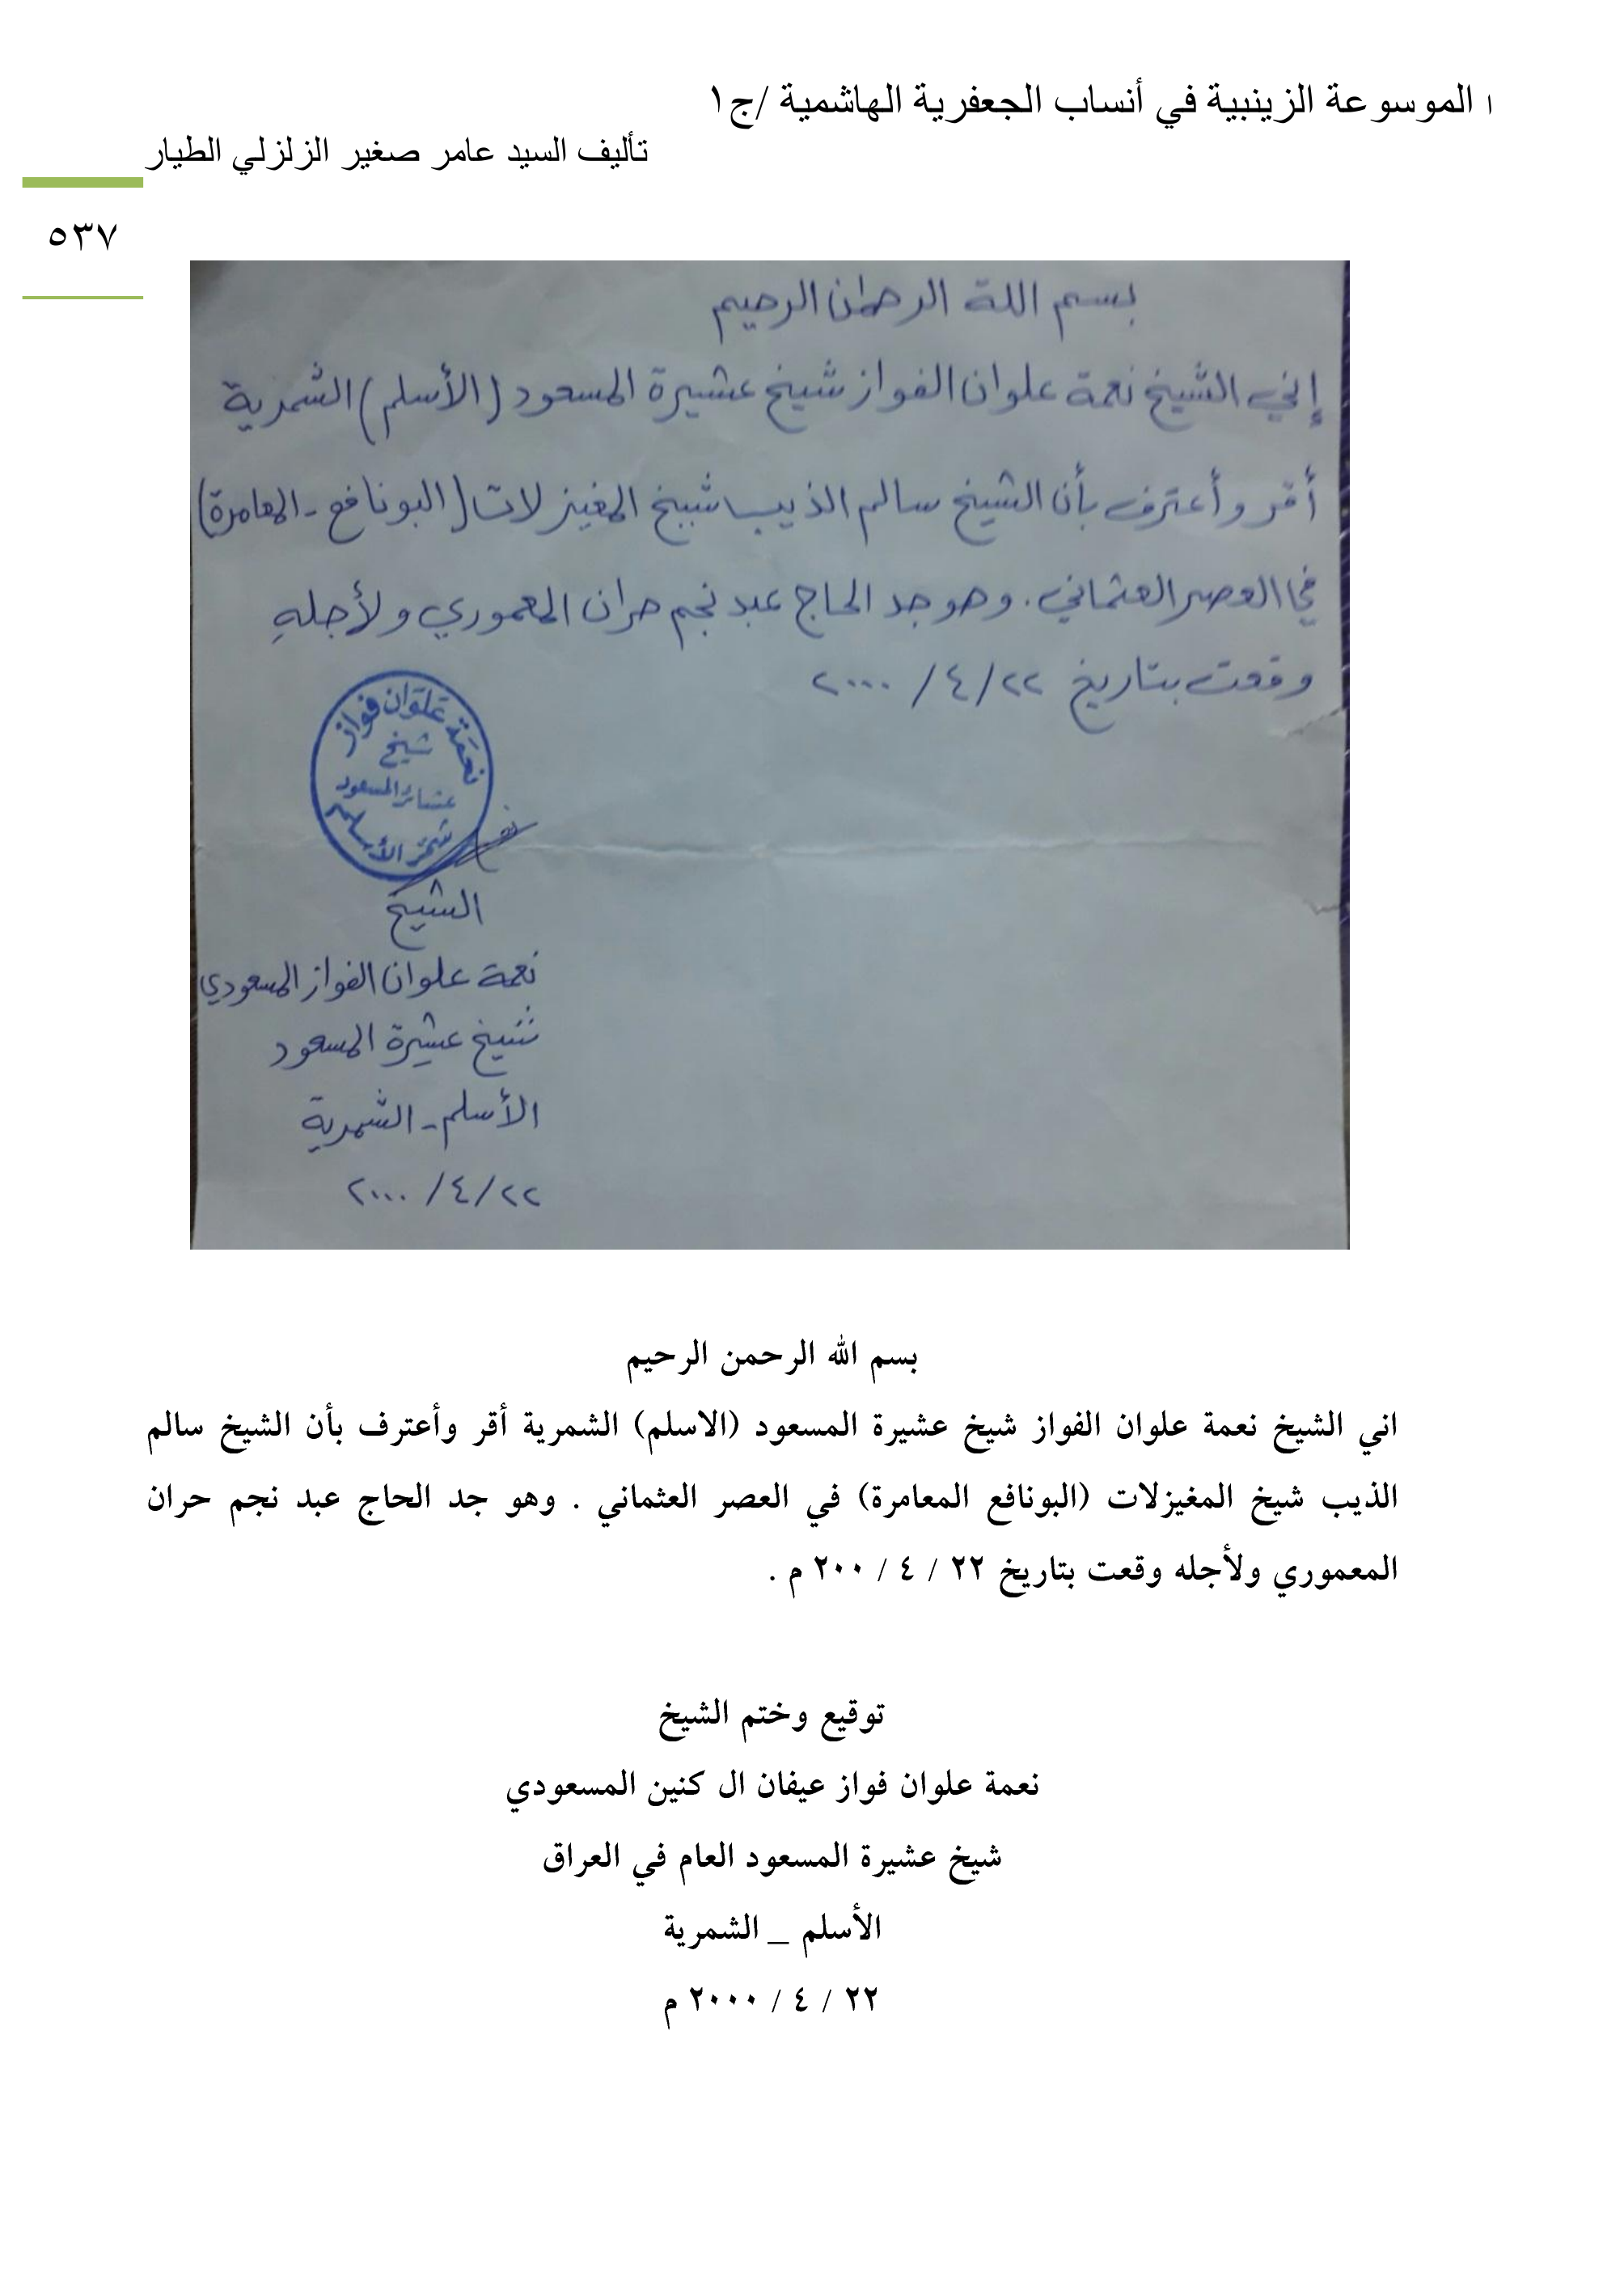 ا الموسوعة الزينبية في أنساب الجعفرية الهاشمية /ج١
تأليف السيد عامر صغير الزلزلي الطيار
٥٣٧
بسم اللة الرحمان الرحيم
إني الشيخ نعمة علوان الفواز شيخ عشيرة المسعود (الأسلم) الشمرية
أقر وأعترف بأن الشيخ سالم الذيب شيخ المغيزلات (البونافع - المعامرة)
في العصر العثماني. وهو جد الحاج عبد نجم حران المعموري ولأجلهِ
وقعت بتاريخ ٢٢/ ٤ / ٢٠٠٠
نعمة علوان فواز
شيخ
عشائر المسعود
شمر الأسلم
الشيخ
نعمة علوان الفواز المسعودي
شيخ عشيرة المسعود
الأسلم - الشمرية
٢٢/ ٤ / ٢٠٠٠
بسم الله الرحمن الرحيم
اني الشيخ نعمة علوان الفواز شيخ عشيرة المسعود (الاسلم) الشمرية أقر وأعترف بأن الشيخ سالم
الذيب شيخ المغيزلات (البونافع المعامرة) في العصر العثماني . وهو جد الحاج عبد نجم حران
المعموري ولأجله وقعت بتاريخ ٢٢ / ٤ / ٢٠٠ م .
توقيع وختم الشيخ
نعمة علوان فواز عيفان ال كنين المسعودي
شيخ عشيرة المسعود العام في العراق
الأسلم _ الشمرية
٢٢ / ٤ / ٢٠٠٠ م